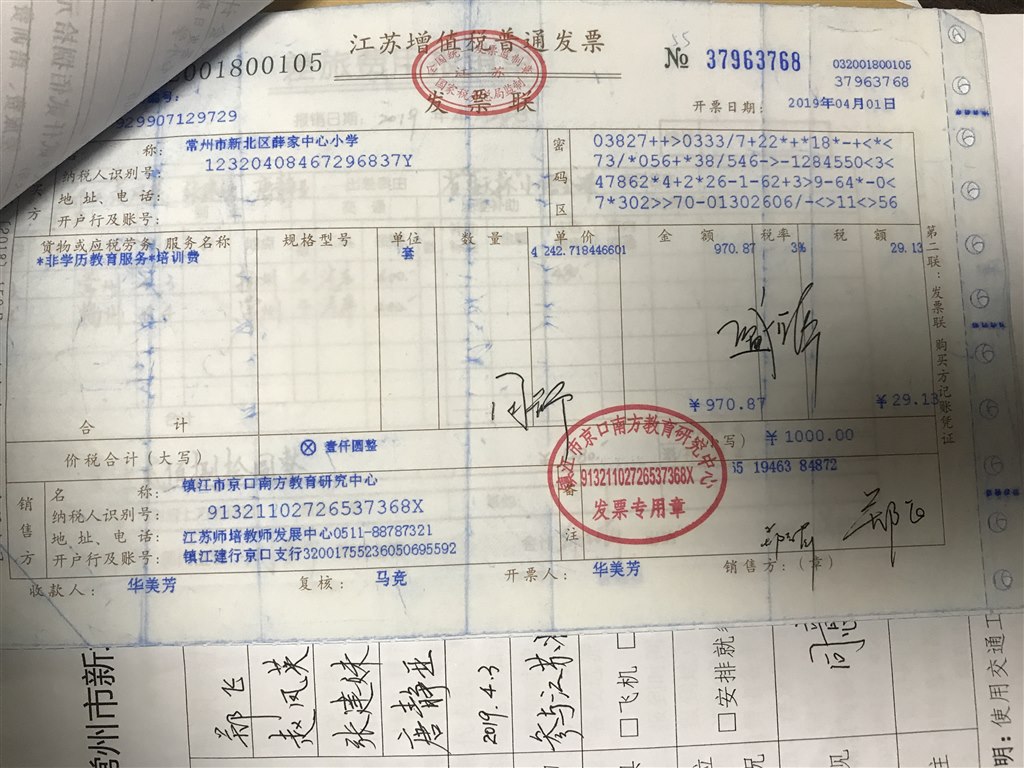 江苏增值税普通发票
发票联
2001800105
№ 37963768
032001800105
37963768
开票日期: 2019年04月01日
929907129729
称: 常州市新北区薛家中心小学
纳税人识别号: 12320408467296837Y
地址、电话:
开户行及账号:
方
密码区
03827++>0333/7+22*+*18*-+<*<
73/*056+*38/546->-1284550<3<
47862*4+2*26-1-62+3>9-64*-0<
7*302>>70-01302606/-<>11<>56
货物或应税劳务、服务名称 规格型号 单位 数量 单价 金额 税率 税额
*非学历教育服务*培训费 套 4 242.718446601 970.87 3% 29.13
合计 ¥970.87 ¥29.13
价税合计(大写) ⊗ 壹仟圆整 写) ¥1000.00
销售方
名称: 镇江市京口南方教育研究中心
纳税人识别号: 91321102726537368X
地址、电话: 江苏师培教师发展中心0511-88787321
开户行及账号: 镇江建行京口支行32001755236050695592
备注
65 19463 84872
镇江市京口南方教育研究中心
91321102726537368X
发票专用章
收款人: 华美芳 复核: 马竞 开票人: 华美芳 销售方:(章)
郑飞
第二联:发票联 购买方记账凭证
常州市新
郑飞
赵凤英
张建妹
唐静亚
2019.4.3
参与江苏
□飞机
□安排就
明:使用交通工